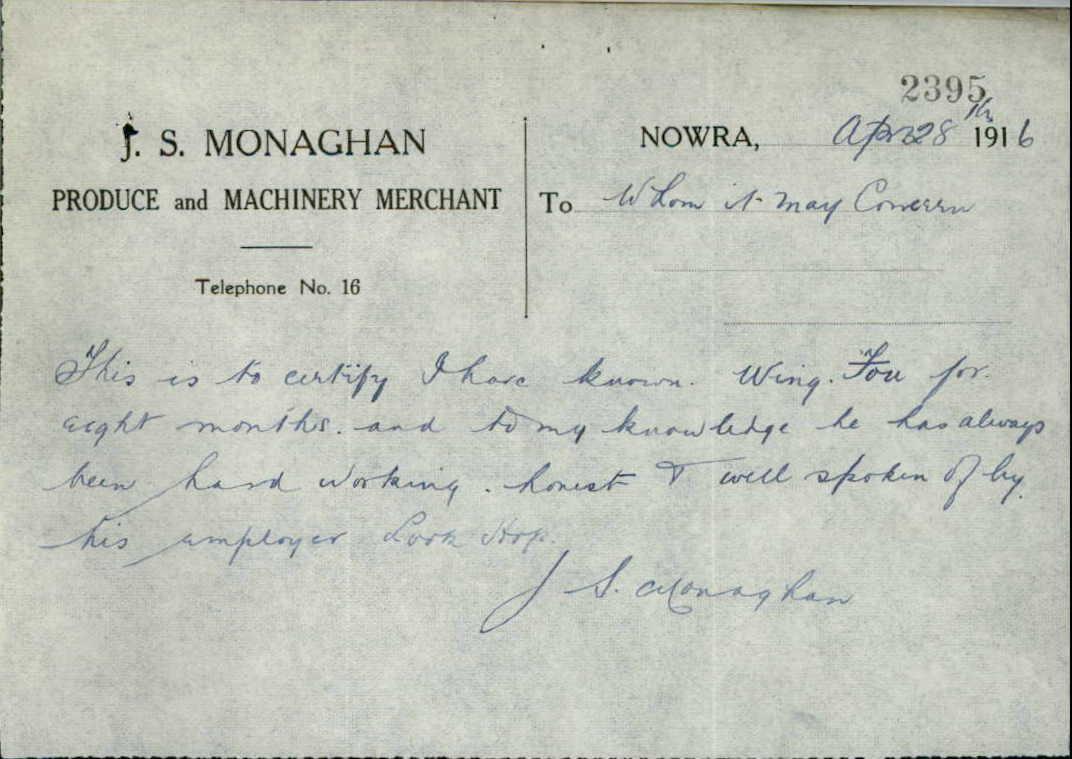 2395
J. S. MONAGHAN
PRODUCE and MACHINERY MERCHANT
Telephone No. 16
NOWRA, Apr 28th 1916
To Whom it May Concern
This is to certify I have known. Wing. Fou for
eight months. and to my knowledge he has always
been hard working. honest & well spoken of by
his employer Hop.
J S. Monaghan